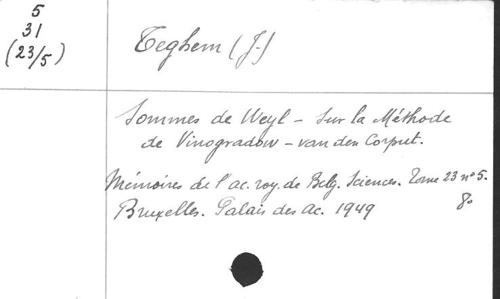 5
31
(23/5)
Teghem (J.)
Sommes de Weyl – Sur la Méthode
de Vinogradow – van den Corput.
Mémoires de l'ac. roy. de Belg. Sciences. Tome 23 nº 5.
Bruxelles. Palais des Ac. 1949 8º